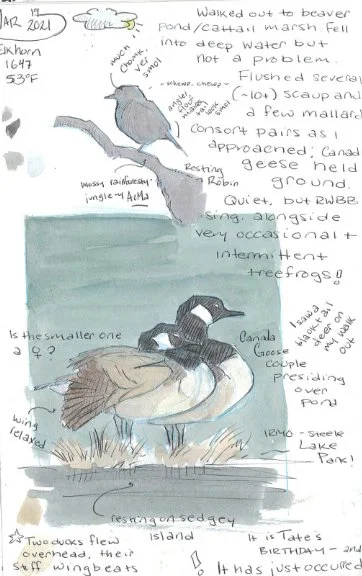 MAR 19 2021
Elkhorn
1647
53°F
Walked out to beaver
pond/cattail marsh. Fell
into deep water but
not a problem.
Flushed several
(~10+) scaup and
a few mallard
consort pairs as I
approached; Canad
geese held
ground.
Quiet, but RWBB
sing, alongside
very occasional +
intermittent
treefrogs!
much
chonk,
ver
smol
-scheup, cheup-
angle
of our
makes
tail
look
smol
Resting
Robin
mossy rainforesty
jungle-y AcMa
Is the smaller one
a ♀?
Canada
Goose
couple
presiding
over
pond
I saw a
blacktail
deer on
my walk
out
wing
relaxed
IRMO - Steele
Lake
Park!
resting on sedgey
island
☆ Two ducks flew
overhead, their
stiff wingbeats
! It is Tate's
BIRTHDAY - and
It has just occurred